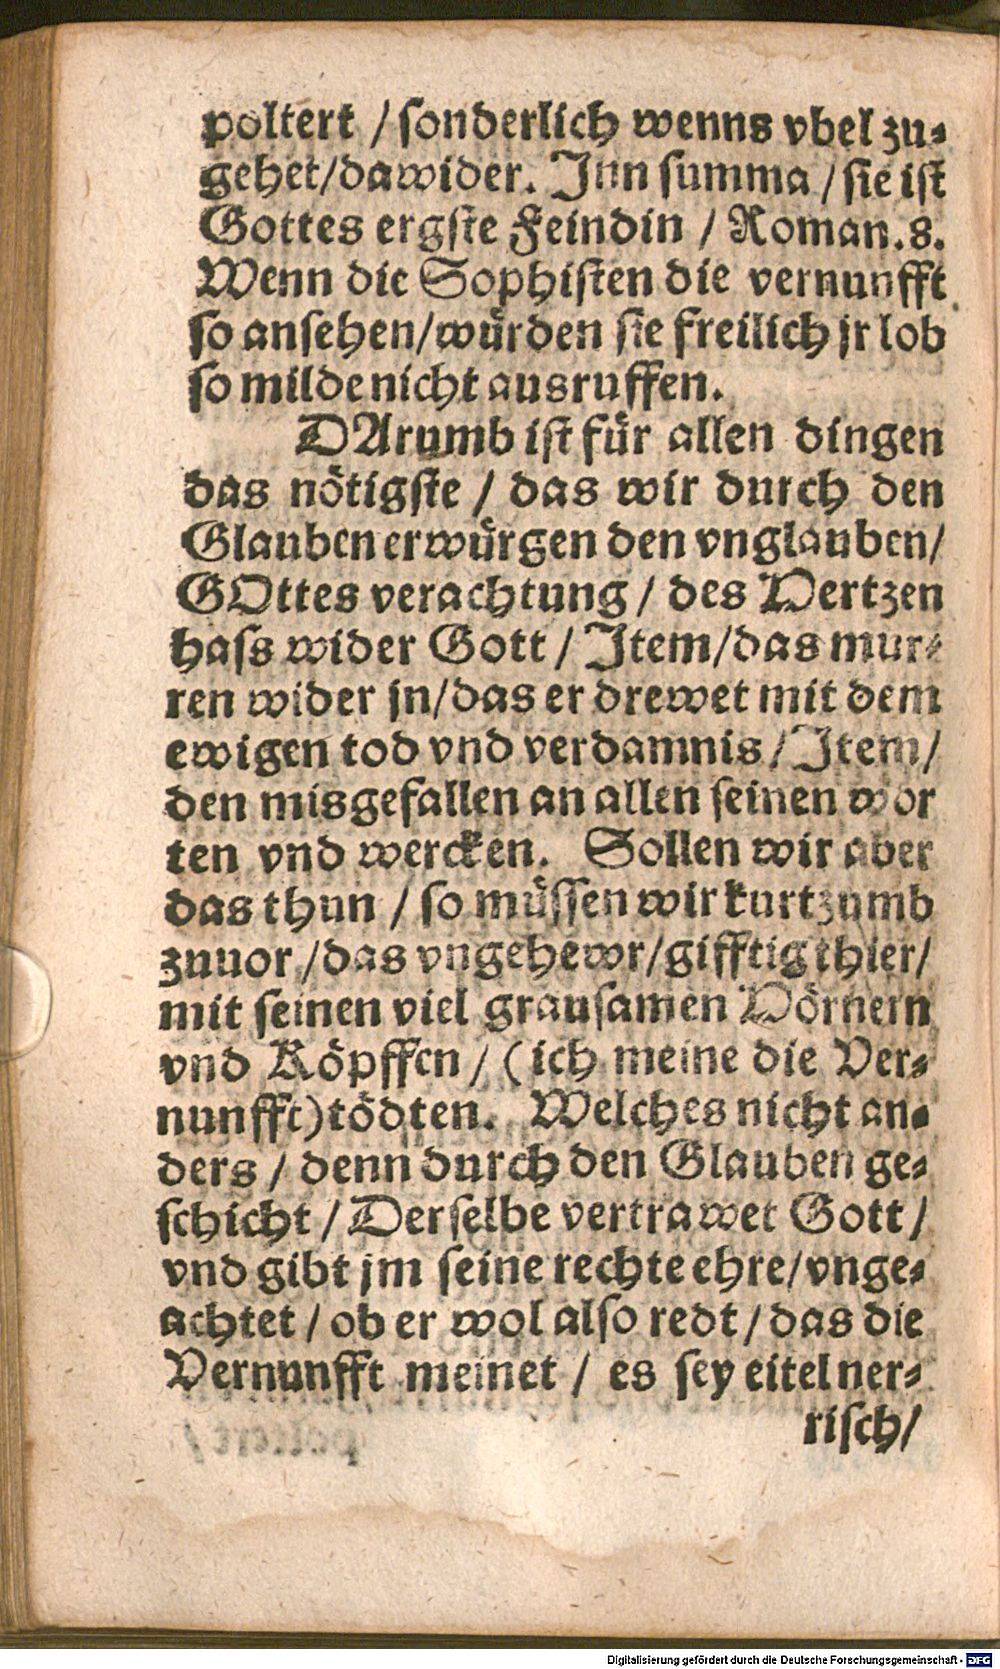 poltert / ſonderlich wenns vbel zu⸗
gehet/dawider. Jnn ſumma / ſie iſt
Gottes ergſte Feindin / Roman.8.
Wenn die Sophiſten die vernunfft
ſo anſehen/würden ſie freilich jr lob
ſo milde nicht ausruffen.
DArumb iſt für allen dingen
das nötigſte / das wir durch den
Glauben erwürgen den vnglauben/
GOttes verachtung / des Hertzen
haſs wider Gott / Jtem/das mur⸗
ren wider jn/das er drewet mit dem
ewigen tod vnd verdamnis/Jtem/
den misgefallen an allen ſeinen wor
ten vnd wercken. Sollen wir aber
das thun / ſo müſſen wir kurtzumb
zuuor/das vngehewr/gifftig thier/
mit ſeinen viel grauſamen Hörnern
vnd Köpffen / (ich meine die Ver⸗
nunfft)tödten. Welches nicht an⸗
ders / denn durch den Glauben ge⸗
ſchicht / Derſelbe vertrawet Gott /
vnd gibt jm ſeine rechte ehre/vnge⸗
achtet / ob er wol alſo redt / das die
Vernunfft meinet / es ſey eitel ner⸗
riſch/
Digitalisierung gefördert durch die Deutsche Forschungsgemeinschaft - DFG